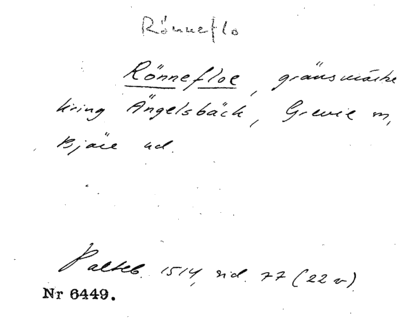 Rönneflo
Rönnefloe, gränsmärke
kring Ängelsbäck, Grevie m,
Bjäre hd.
Palteb. 1514, sid. 77 (22 v).
Nr 6449.